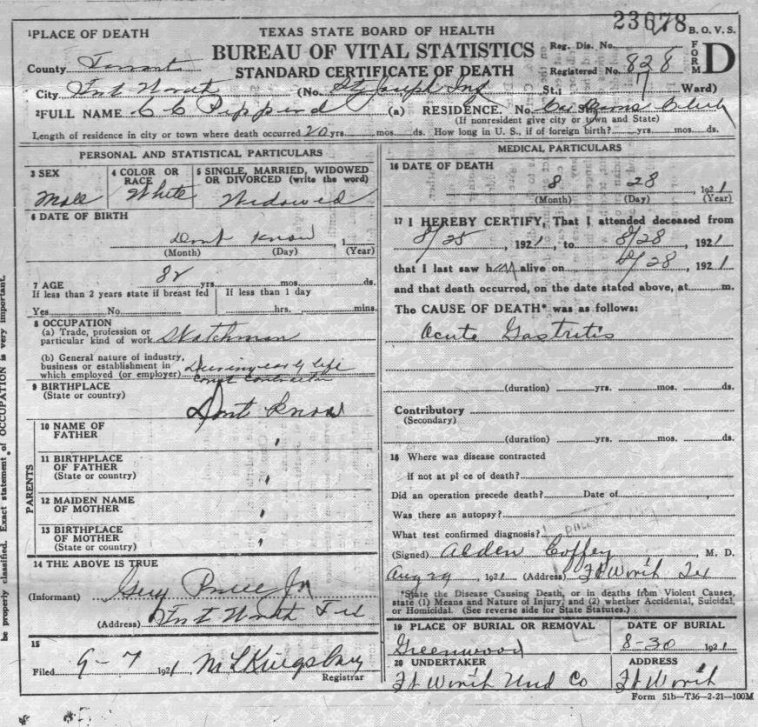 23678 B.O.V.S.
1PLACE OF DEATH
TEXAS STATE BOARD OF HEALTH
BUREAU OF VITAL STATISTICS
STANDARD CERTIFICATE OF DEATH
Reg. Dis. No.
Registered No. 828
FORM D
County Tarrant
City Fort Worth (No. St Joseph Inf St.; 7 Ward)
2FULL NAME C C Pippin (a) RESIDENCE. No. St.
(If nonresident give city or town and State)
Length of residence in city or town where death occurred 20 yrs. mos. ds. How long in U. S., if of foreign birth? yrs. mos. ds.
PERSONAL AND STATISTICAL PARTICULARS
3 SEX
Male
4 COLOR OR RACE
White
5 SINGLE, MARRIED, WIDOWED OR DIVORCED (write the word)
Widowed
6 DATE OF BIRTH
Dont Know 1
(Month) (Day) (Year)
7 AGE
82 yrs. mos. ds.
If less than 2 years state if breast fed
Yes No
If less than 1 day
hrs. mins.
8 OCCUPATION
(a) Trade, profession or
particular kind of work Watchman
(b) General nature of industry,
business or establishment in
which employed (or employer) During early life
9 BIRTHPLACE
(State or country)
Dont Know
PARENTS
10 NAME OF FATHER
11 BIRTHPLACE OF FATHER
(State or country)
12 MAIDEN NAME OF MOTHER
13 BIRTHPLACE OF MOTHER
(State or country)
14 THE ABOVE IS TRUE
(Informant) Guy Price Jr
(Address) Fort Worth Tex
15
Filed 9-7 1921 M L Kingsbury
Registrar
MEDICAL PARTICULARS
16 DATE OF DEATH
8 28 1921
(Month) (Day) (Year)
17 I HEREBY CERTIFY, That I attended deceased from
8/25, 1921, to 8/28, 1921
that I last saw him alive on 8/28, 1921
and that death occurred, on the date stated above, at m.
The CAUSE OF DEATH* was as follows:
Acute Gastritis
(duration) yrs. mos. ds.
Contributory
(Secondary)
(duration) yrs. mos. ds.
18 Where was disease contracted
if not at place of death?
Did an operation precede death? Date of
Was there an autopsy?
What test confirmed diagnosis?
(Signed) Alden Coffey, M. D.
Aug 29, 1921 (Address) Ft Worth Tex
*State the Disease Causing Death, or in deaths from Violent Causes,
state (1) Means and Nature of Injury; and (2) whether Accidental, Suicidal,
or Homicidal. (See reverse side for State Statutes.)
19 PLACE OF BURIAL OR REMOVAL
Greenwood
DATE OF BURIAL
8-30 1921
20 UNDERTAKER
Ft Worth Und Co
ADDRESS
Ft Worth
Form 51b—T36—2-21—100M
be properly classified. Exact statement of OCCUPATION is very important.